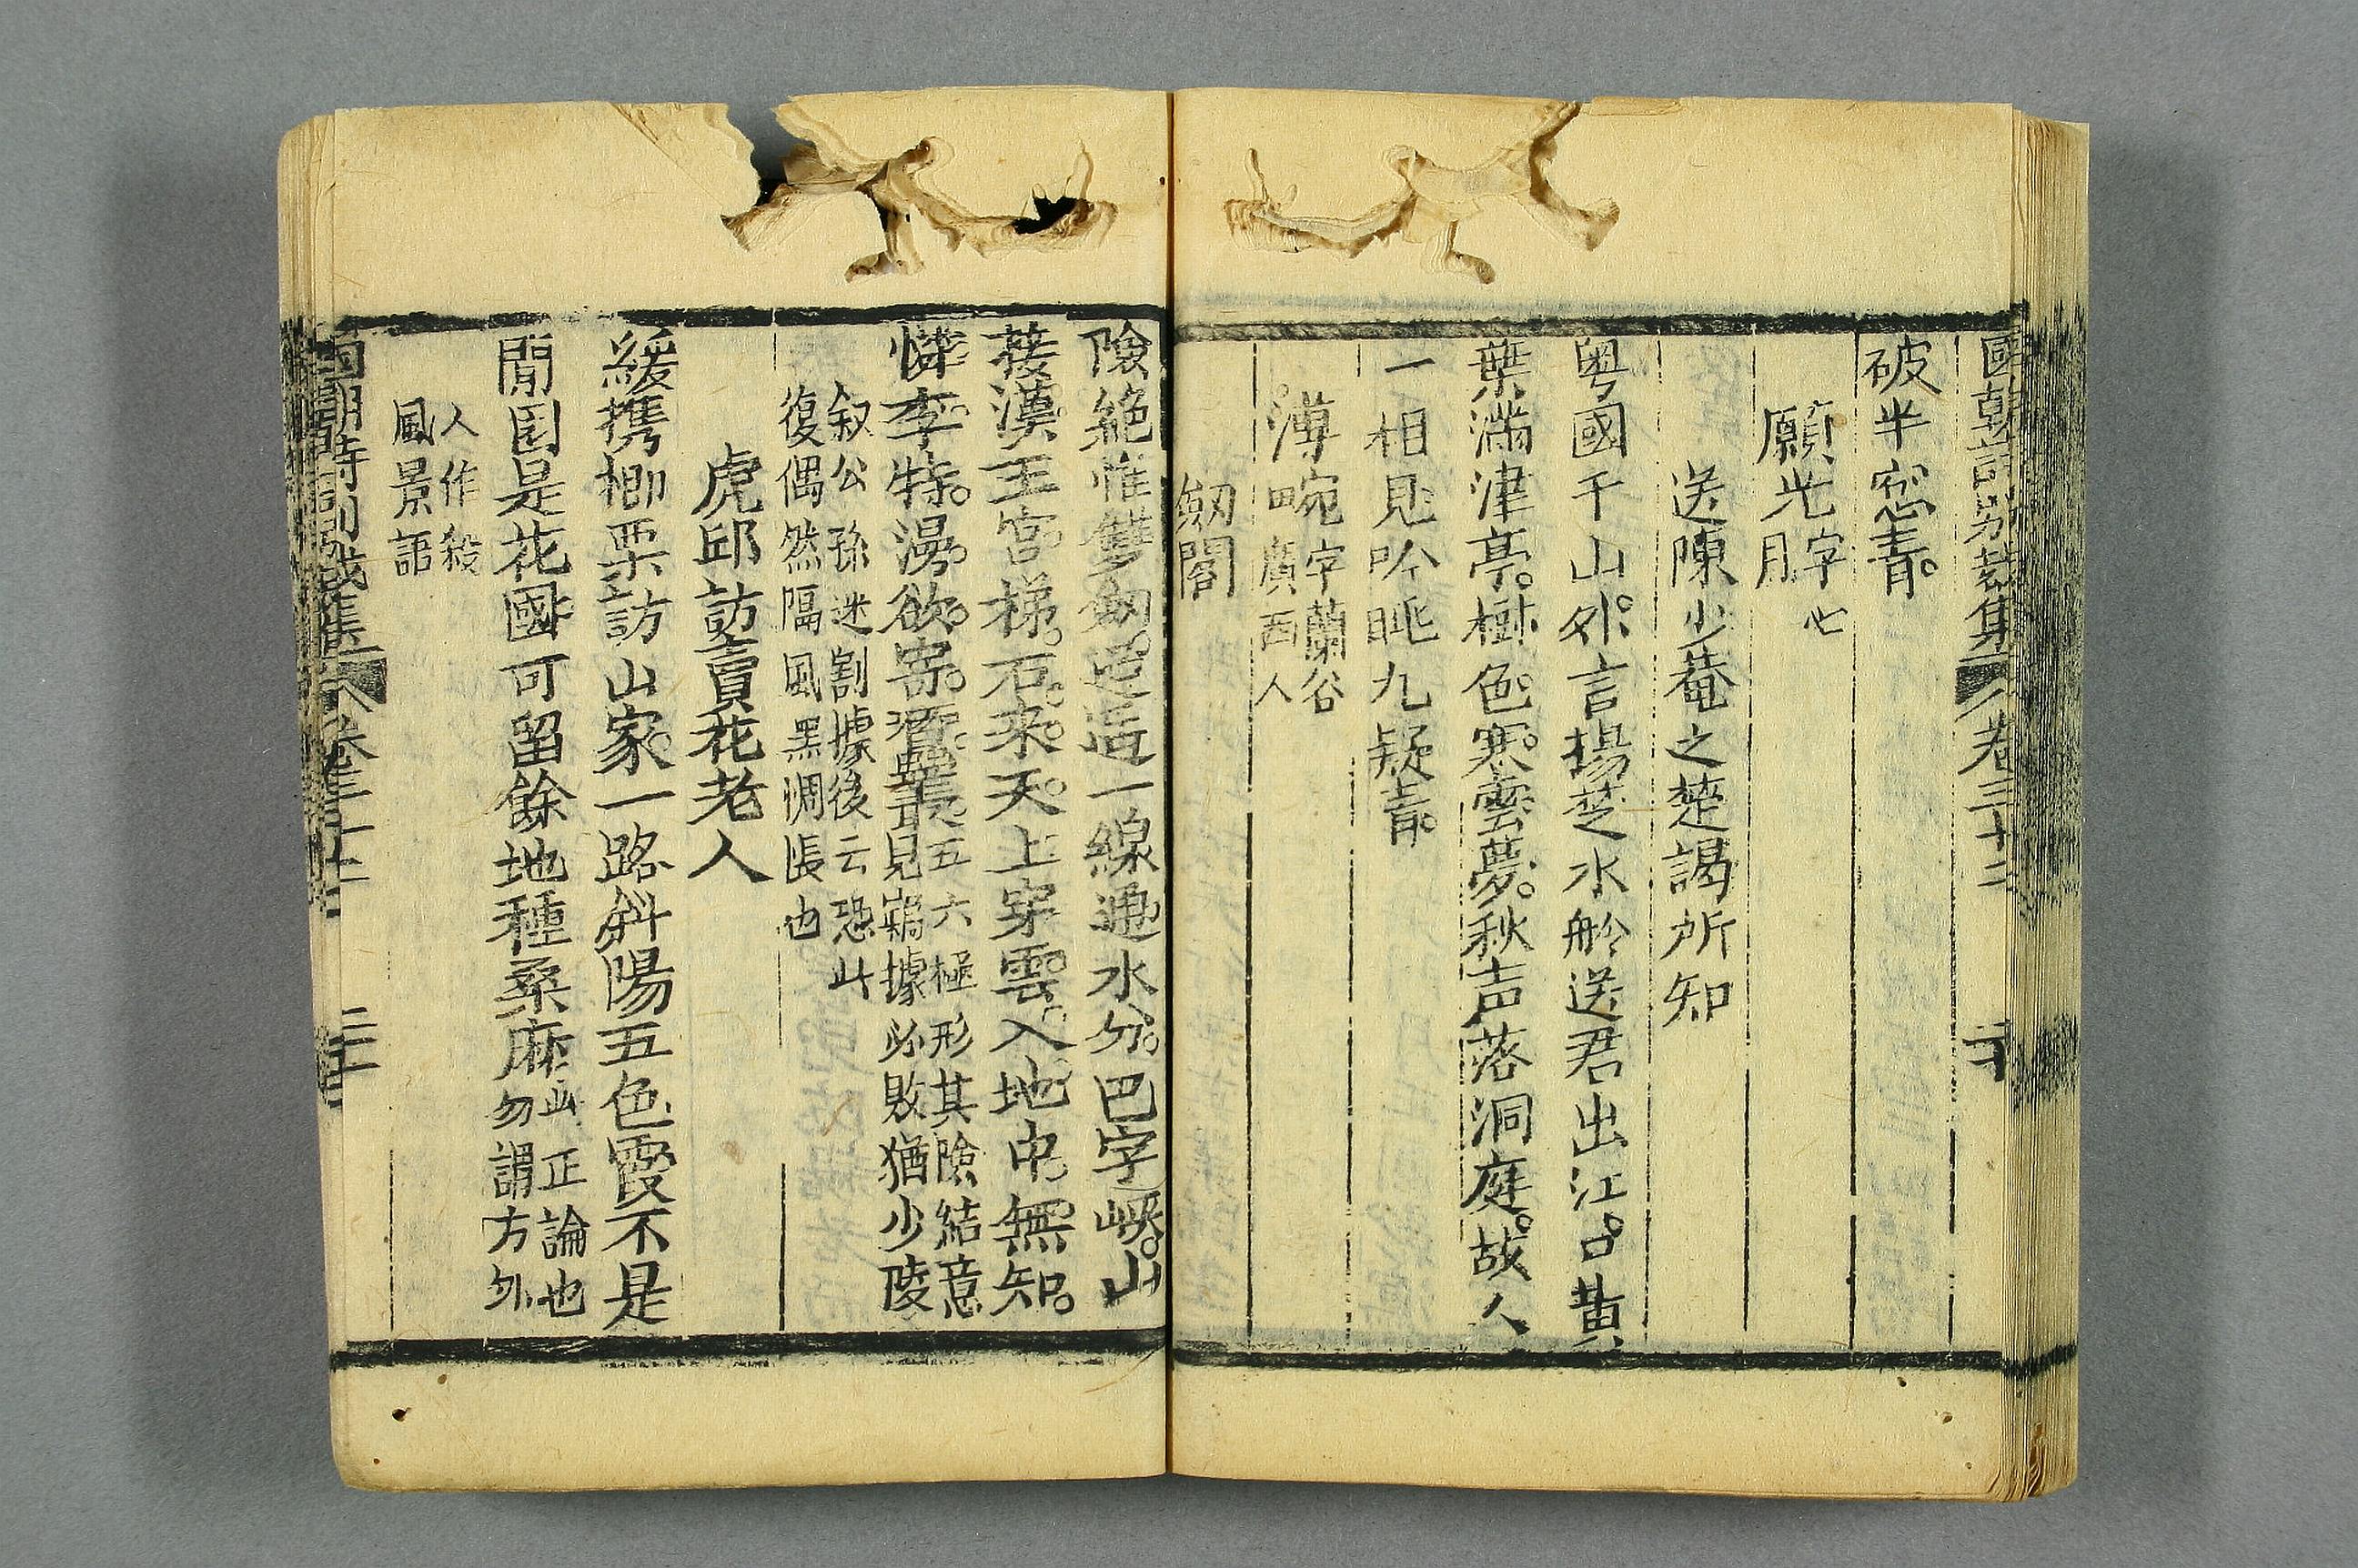 國朝詩別裁集 卷三十二 二十
破半窓青
願光 字心月
送陳少菴之楚謁所知
粤國千山外言揚楚水舲送君出江口黄
葉滿津亭樹色寒雲夢秋声落洞庭故人
一相見吟眺九疑青
溥畹 字蘭谷廣西人
劒閣
險絶惟雙劒 一線通水分巴字峽山
接漢王宫梯石来天上穿雲入地中無知
憐李特漫欲寄蚕叢 五六極形其險結意見竊據必敗猶少陵
叙公孫述割據後云恐此復偶然隔風黒惆悵也
虎邱訪賣花老人
緩携楖栗訪山家一路斜陽五色霞不是
閒园是花國可留餘地種桑麻 此正論也勿謂方外
人作殺風景語
國朝詩別裁集 卷三十二 二十